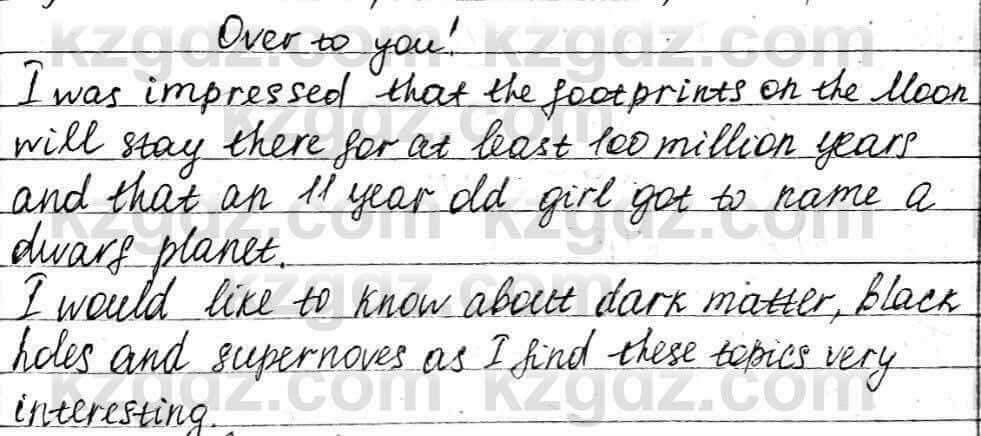 Over to you!
I was impressed that the footprints on the Moon
will stay there for at least 100 million years
and that an 11 year old girl got to name a
dwarf planet.
I would like to know about dark matter, black
holes and supernoves as I find these topics very
interesting.
kzgdz.com